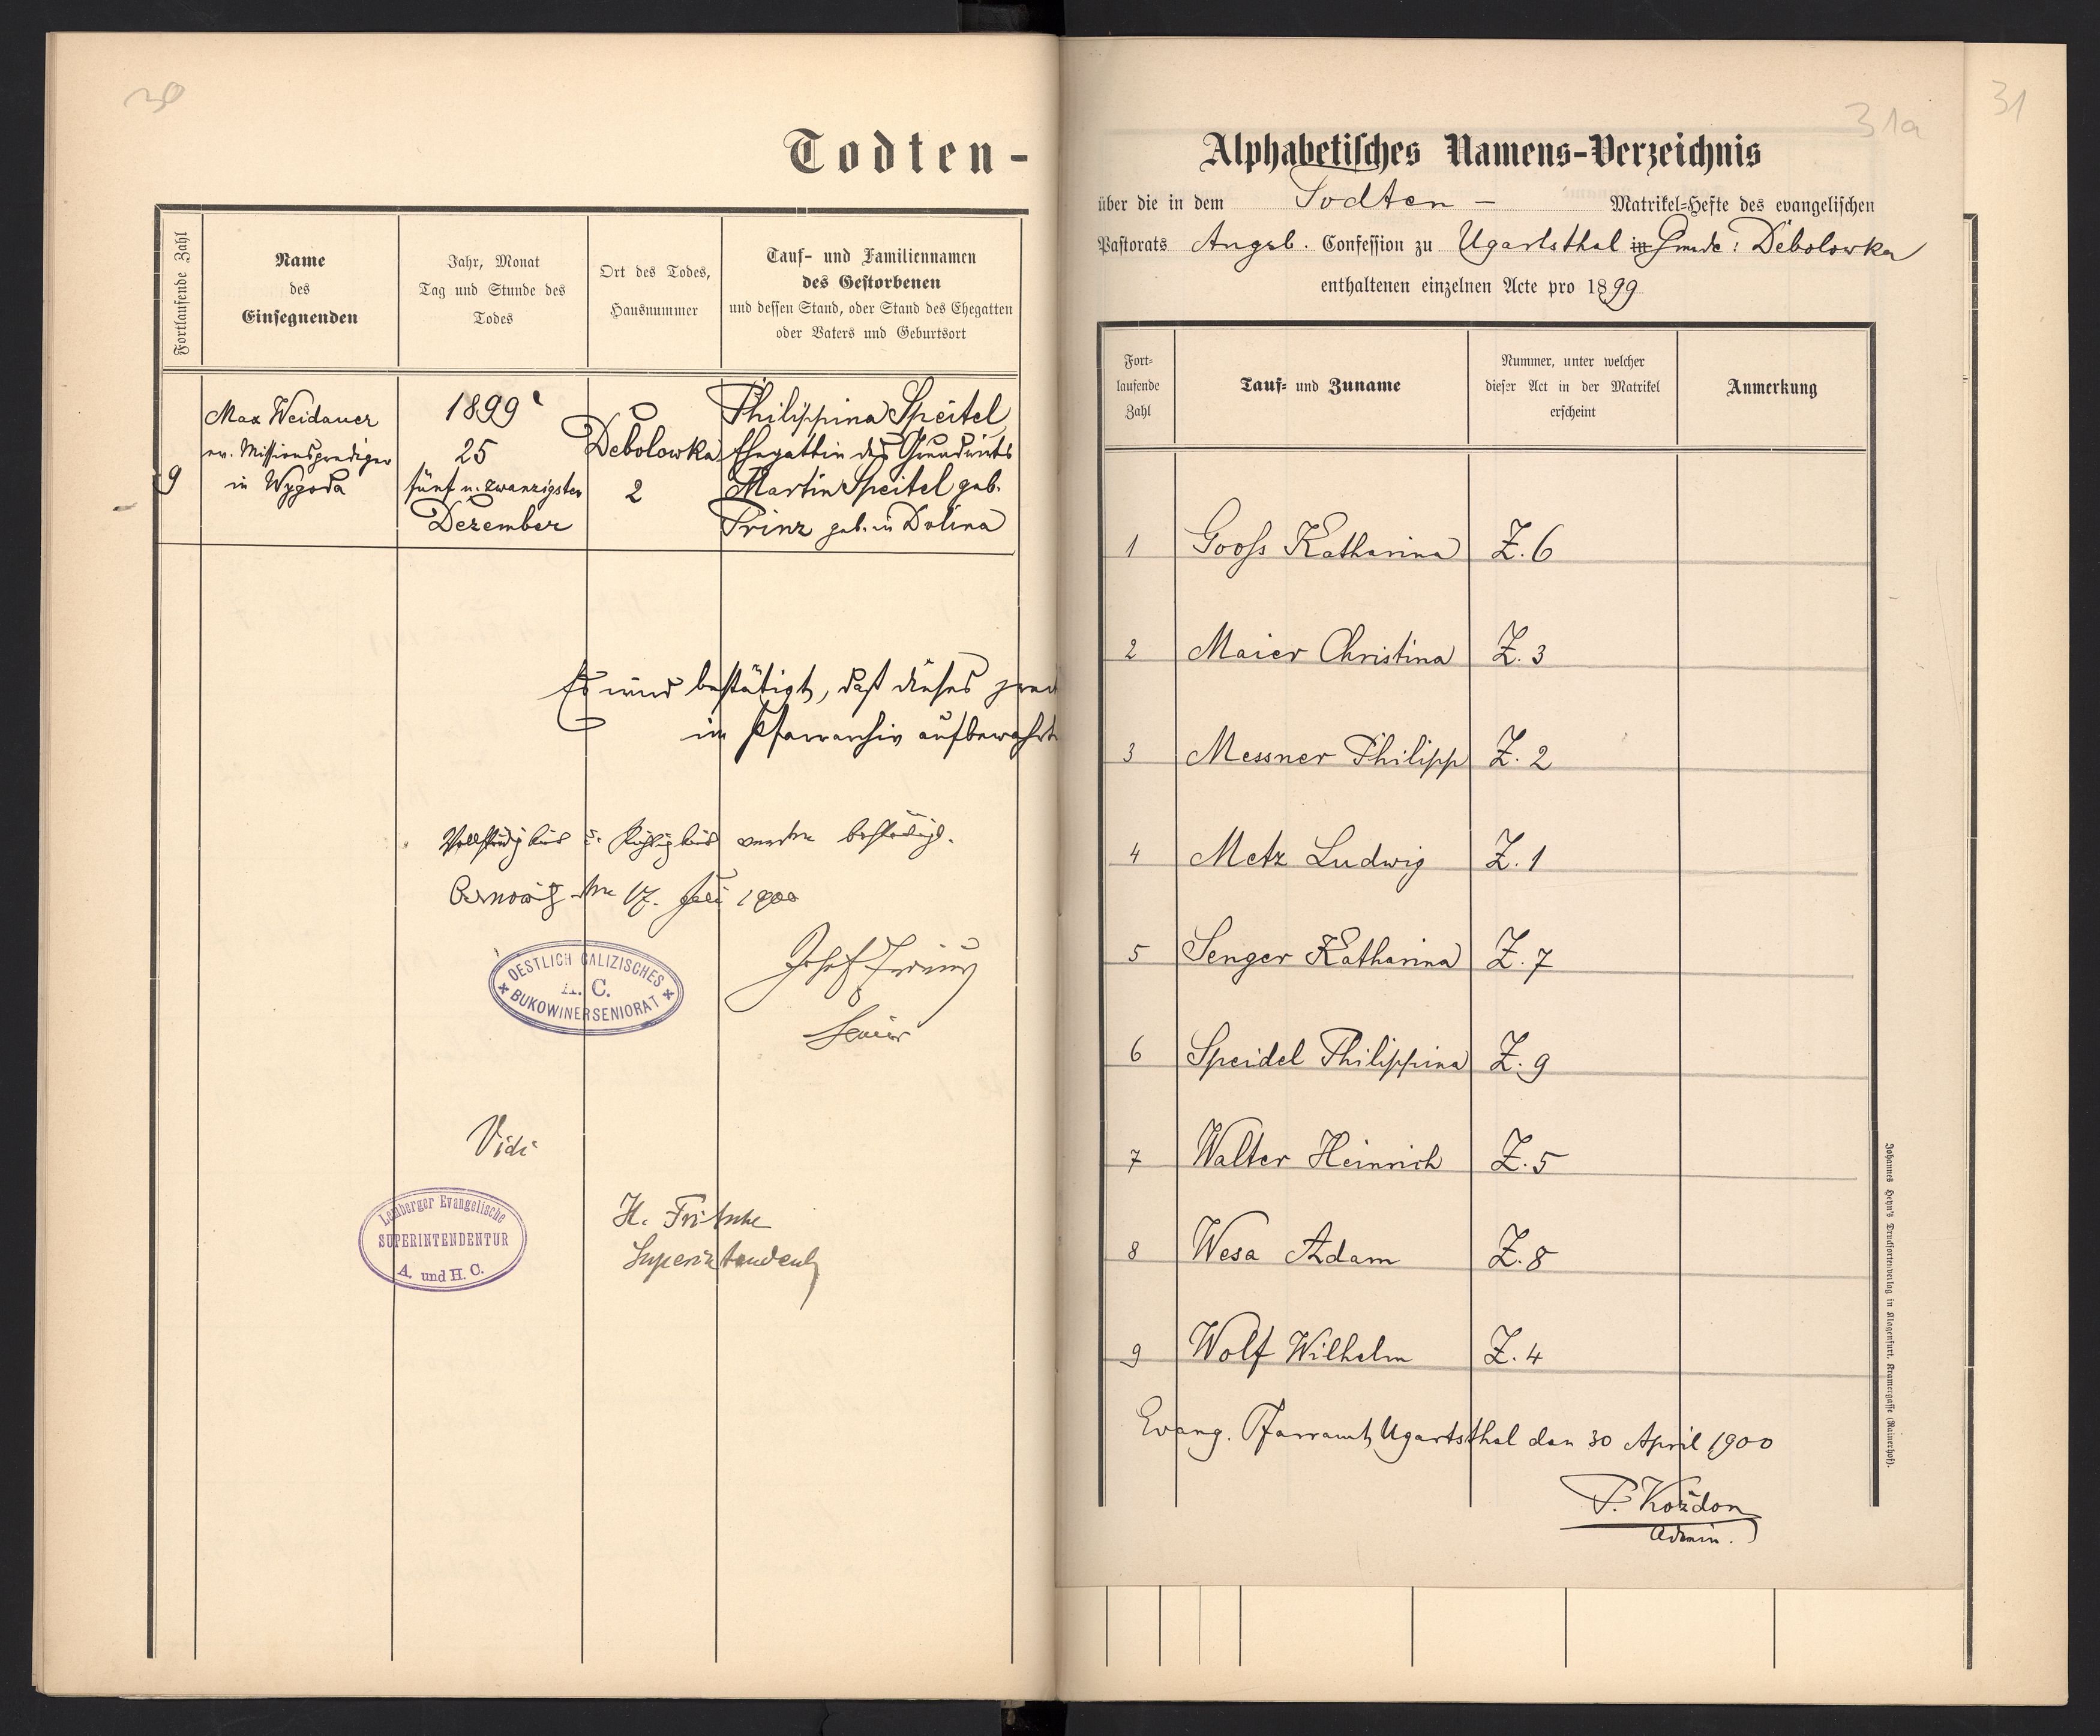 30
Todten-
Fortlaufende Zahl
Name
des
Einsegnenden
Jahr, Monat
Tag und Stunde des
Todes
Ort des Todes,
Hausnummer
Tauf- und Familiennamen
des Gestorbenen
und dessen Stand, oder Stand des Ehegatten
oder Vaters und Geburtsort
9
Max Weidauer
ev. Missionsprediger
in Wygoda
1899
25
fünf u. zwanzigsten
Dezember
Debolowka
2
Philippina Speitel
Ehegattin des Grundwirts
Martin Speitel geb.
Prinz geb. in Dolina
Es wird bestätigt, daß dieses
im Pfarrarchiv aufbewahrt
Vollständigkeit u. Richtigkeit werden bestätigt.
den 17. Juli 1900
OESTLICH GALIZISCHES
H. C.
BUKOWINERSENIORAT
Josef
Senior
Vidi
Lemberger Evangelische
SUPERINTENDENTUR
A. und H. C.
H. Fritsche
Superintendent
31a
31
Alphabetisches Namens-Verzeichnis
über die in dem Todten - Matrikel-Hefte des evangelischen
Pastorats Augsb. Confession zu Ugartsthal in Gmde: Debolowka
enthaltenen einzelnen Acte pro 1899
Fort-
laufende
Zahl
Tauf- und Zuname
Nummer, unter welcher
dieser Act in der Matrikel
erscheint
Anmerkung
1 Gooss Katharina Z. 6
2 Maier Christina Z. 3
3 Messner Philipp Z. 2
4 Metz Ludwig Z. 1
5 Senger Katharina Z. 7
6 Speidel Philippina Z. 9
7 Walter Heinrich Z. 5
8 Wesa Adam Z. 8
9 Wolf Wilhelm Z. 4
Evang. Pfarramt Ugartsthal den 30 April 1900
P. Koždon
Admin.
Johannes Heyn's Drucksortenverlag in Klagenfurt, Kramergasse (Rainerhof).